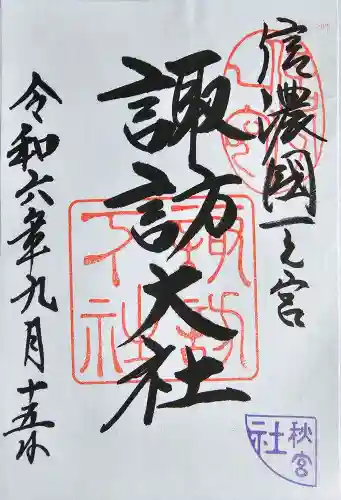 信濃國一之宮
諏訪大社
令和六年九月十五日
諏訪下社
秋宮
社